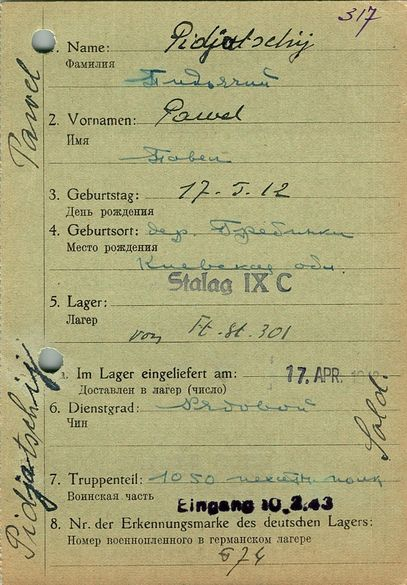 317
1. Name: Pidjatschij
Фамилия
Пидьячий
2. Vornamen: Pawel
Имя
Павел
3. Geburtstag: 17. 5. 12
День рождения
4. Geburtsort: дер. Гребинки
Место рождения
Киевская обл.
Stalag IX C
5. Lager:
Лагер
von Ft. St. 301
Im Lager eingeliefert am: 17. APR.
Доставлен в лагер (число)
6. Dienstgrad: Рядовой
Чин
Sold.
7. Truppenteil: 1050 пехотн. полк
Воинская часть
Eingang 10.2.43
8. Nr. der Erkennungsmarke des deutschen Lagers:
Номер военнопленного в германском лагере
674
Pidjatschij
Pawel